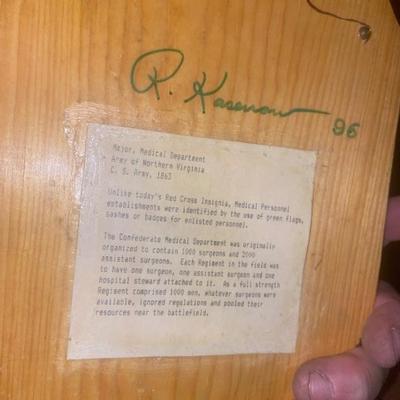 R. Kasenow 96
Major, Medical Department
Army of Northern Virginia
C. S. Army, 1863
Unlike today's Red Cross Insignia, Medical Personnel
establishments were identified by the use of green flags,
sashes or badges for enlisted personnel.
The Confederate Medical Department was originally
organized to contain 1000 surgeons and 2000
assistant surgeons. Each Regiment in the field was
to have one surgeon, one assistant surgeon and one
hospital steward attached to it. As a full strength
Regiment comprised 1000 men, whatever surgeons were
available, ignored regulations and pooled their
resources near the battlefield.